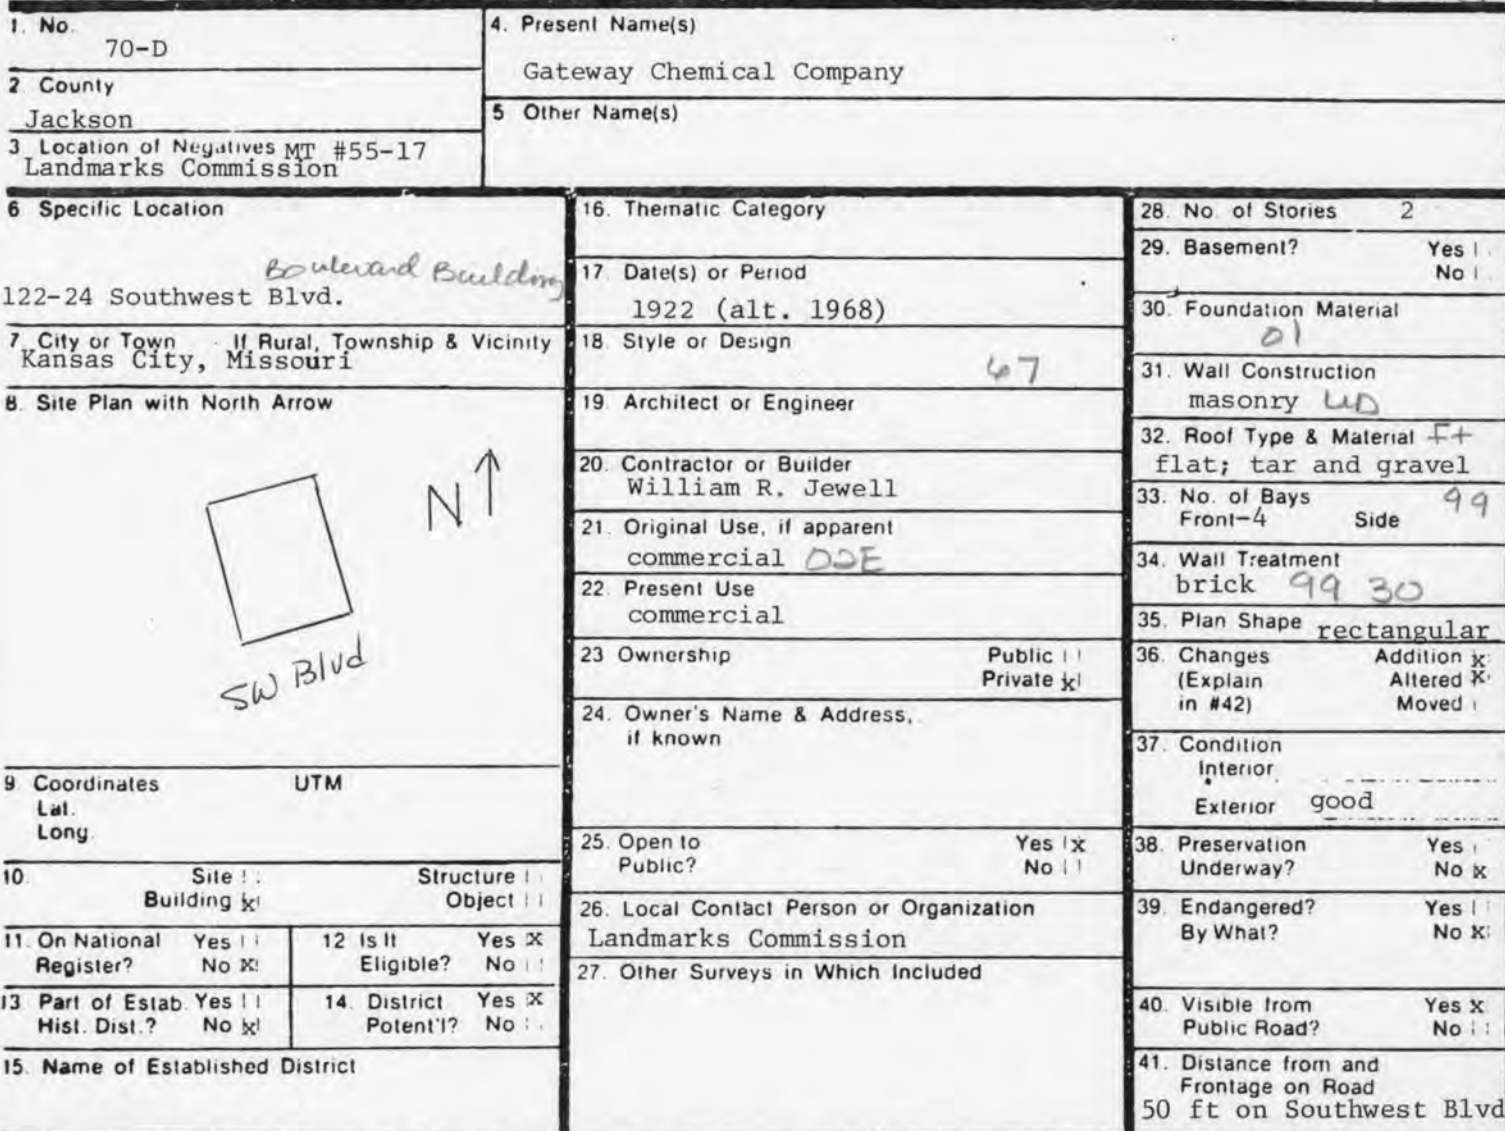 1. No.
70-D
2 County
Jackson
3 Location of Negatives MT #55-17
Landmarks Commission
4. Present Name(s)
Gateway Chemical Company
5 Other Name(s)
6 Specific Location
Boulevard Building
122-24 Southwest Blvd.
7. City or Town If Rural, Township & Vicinity
Kansas City, Missouri
8. Site Plan with North Arrow
N
SW Blvd
9. Coordinates UTM
Lat.
Long.
10. Site Structure
Building x Object
11. On National Yes
Register? No X
12 Is It Yes X
Eligible? No
13 Part of Estab. Yes
Hist. Dist.? No x
14. District Yes X
Potent'l? No
15. Name of Established District
16. Thematic Category
17. Date(s) or Period
1922 (alt. 1968)
18. Style or Design
67
19. Architect or Engineer
20. Contractor or Builder
William R. Jewell
21. Original Use, if apparent
commercial 02E
22. Present Use
commercial
23 Ownership Public
Private x
24. Owner's Name & Address,
if known
25. Open to Yes x
Public? No
26. Local Contact Person or Organization
Landmarks Commission
27. Other Surveys in Which Included
28. No. of Stories 2
29. Basement? Yes
No
30. Foundation Material
01
31. Wall Construction
masonry
32. Roof Type & Material Ft
flat; tar and gravel
33. No. of Bays 99
Front-4 Side
34. Wall Treatment
brick 99 30
35. Plan Shape rectangular
36. Changes Addition x
(Explain Altered x
in #42) Moved
37. Condition
Interior
Exterior good
38. Preservation Yes
Underway? No x
39. Endangered? Yes
By What? No x
40. Visible from Yes x
Public Road? No
41. Distance from and
Frontage on Road
50 ft on Southwest Blvd